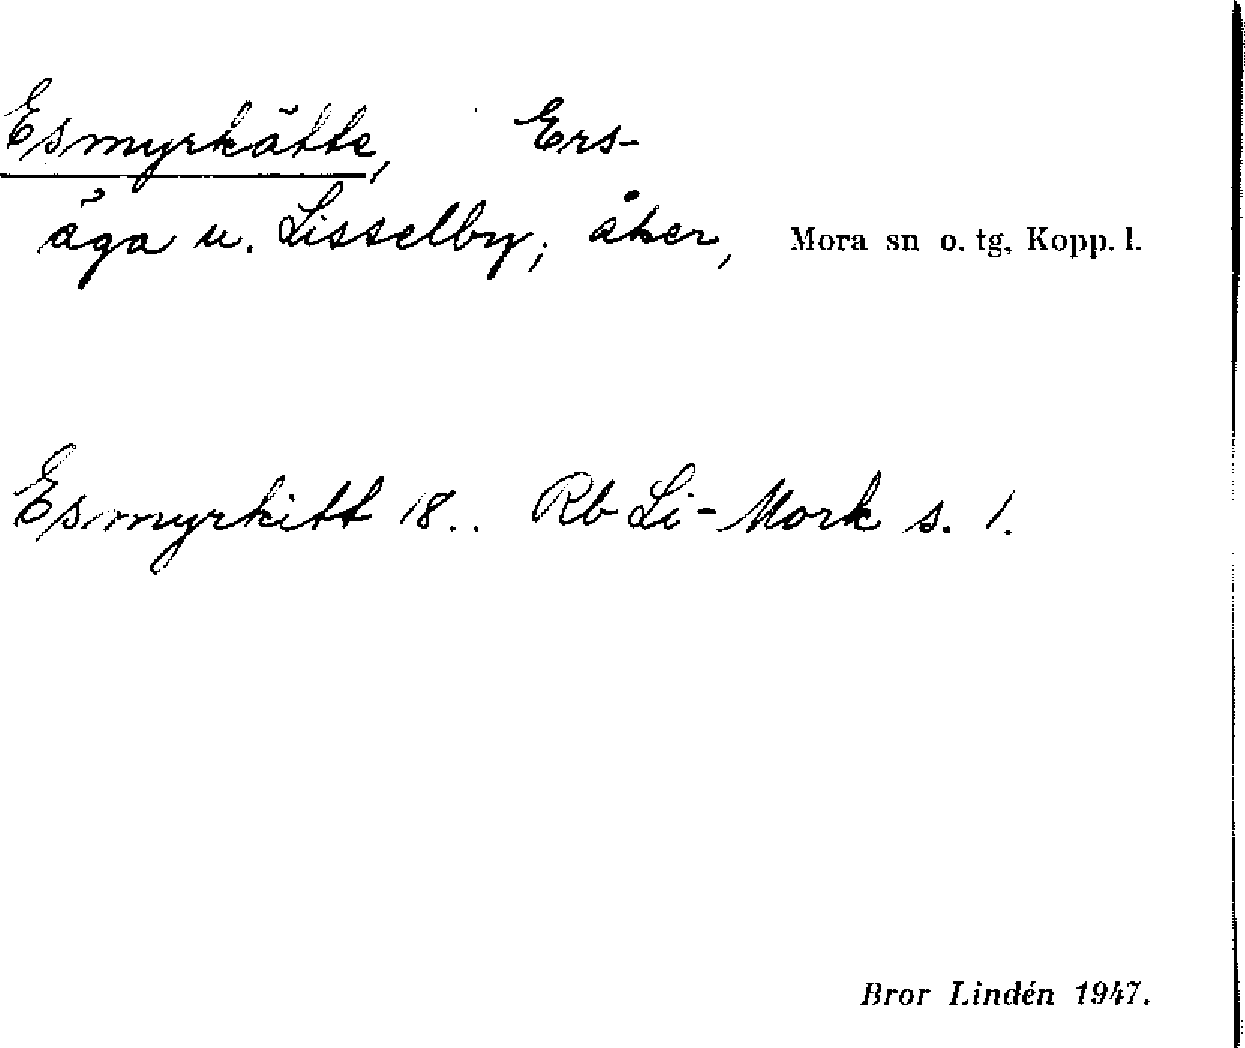 Esmyrkätte, Ers-
äga u. Lisselby; åker, Mora sn o. tg, Kopp. l.
Esmyrkitt 18.. Rb Li-Mork s. 1.
Bror Lindén 1947.